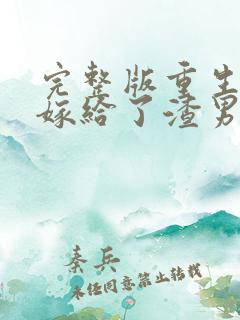 完整版重生
嫁给了渣男
秦兵
未经同意禁止转载